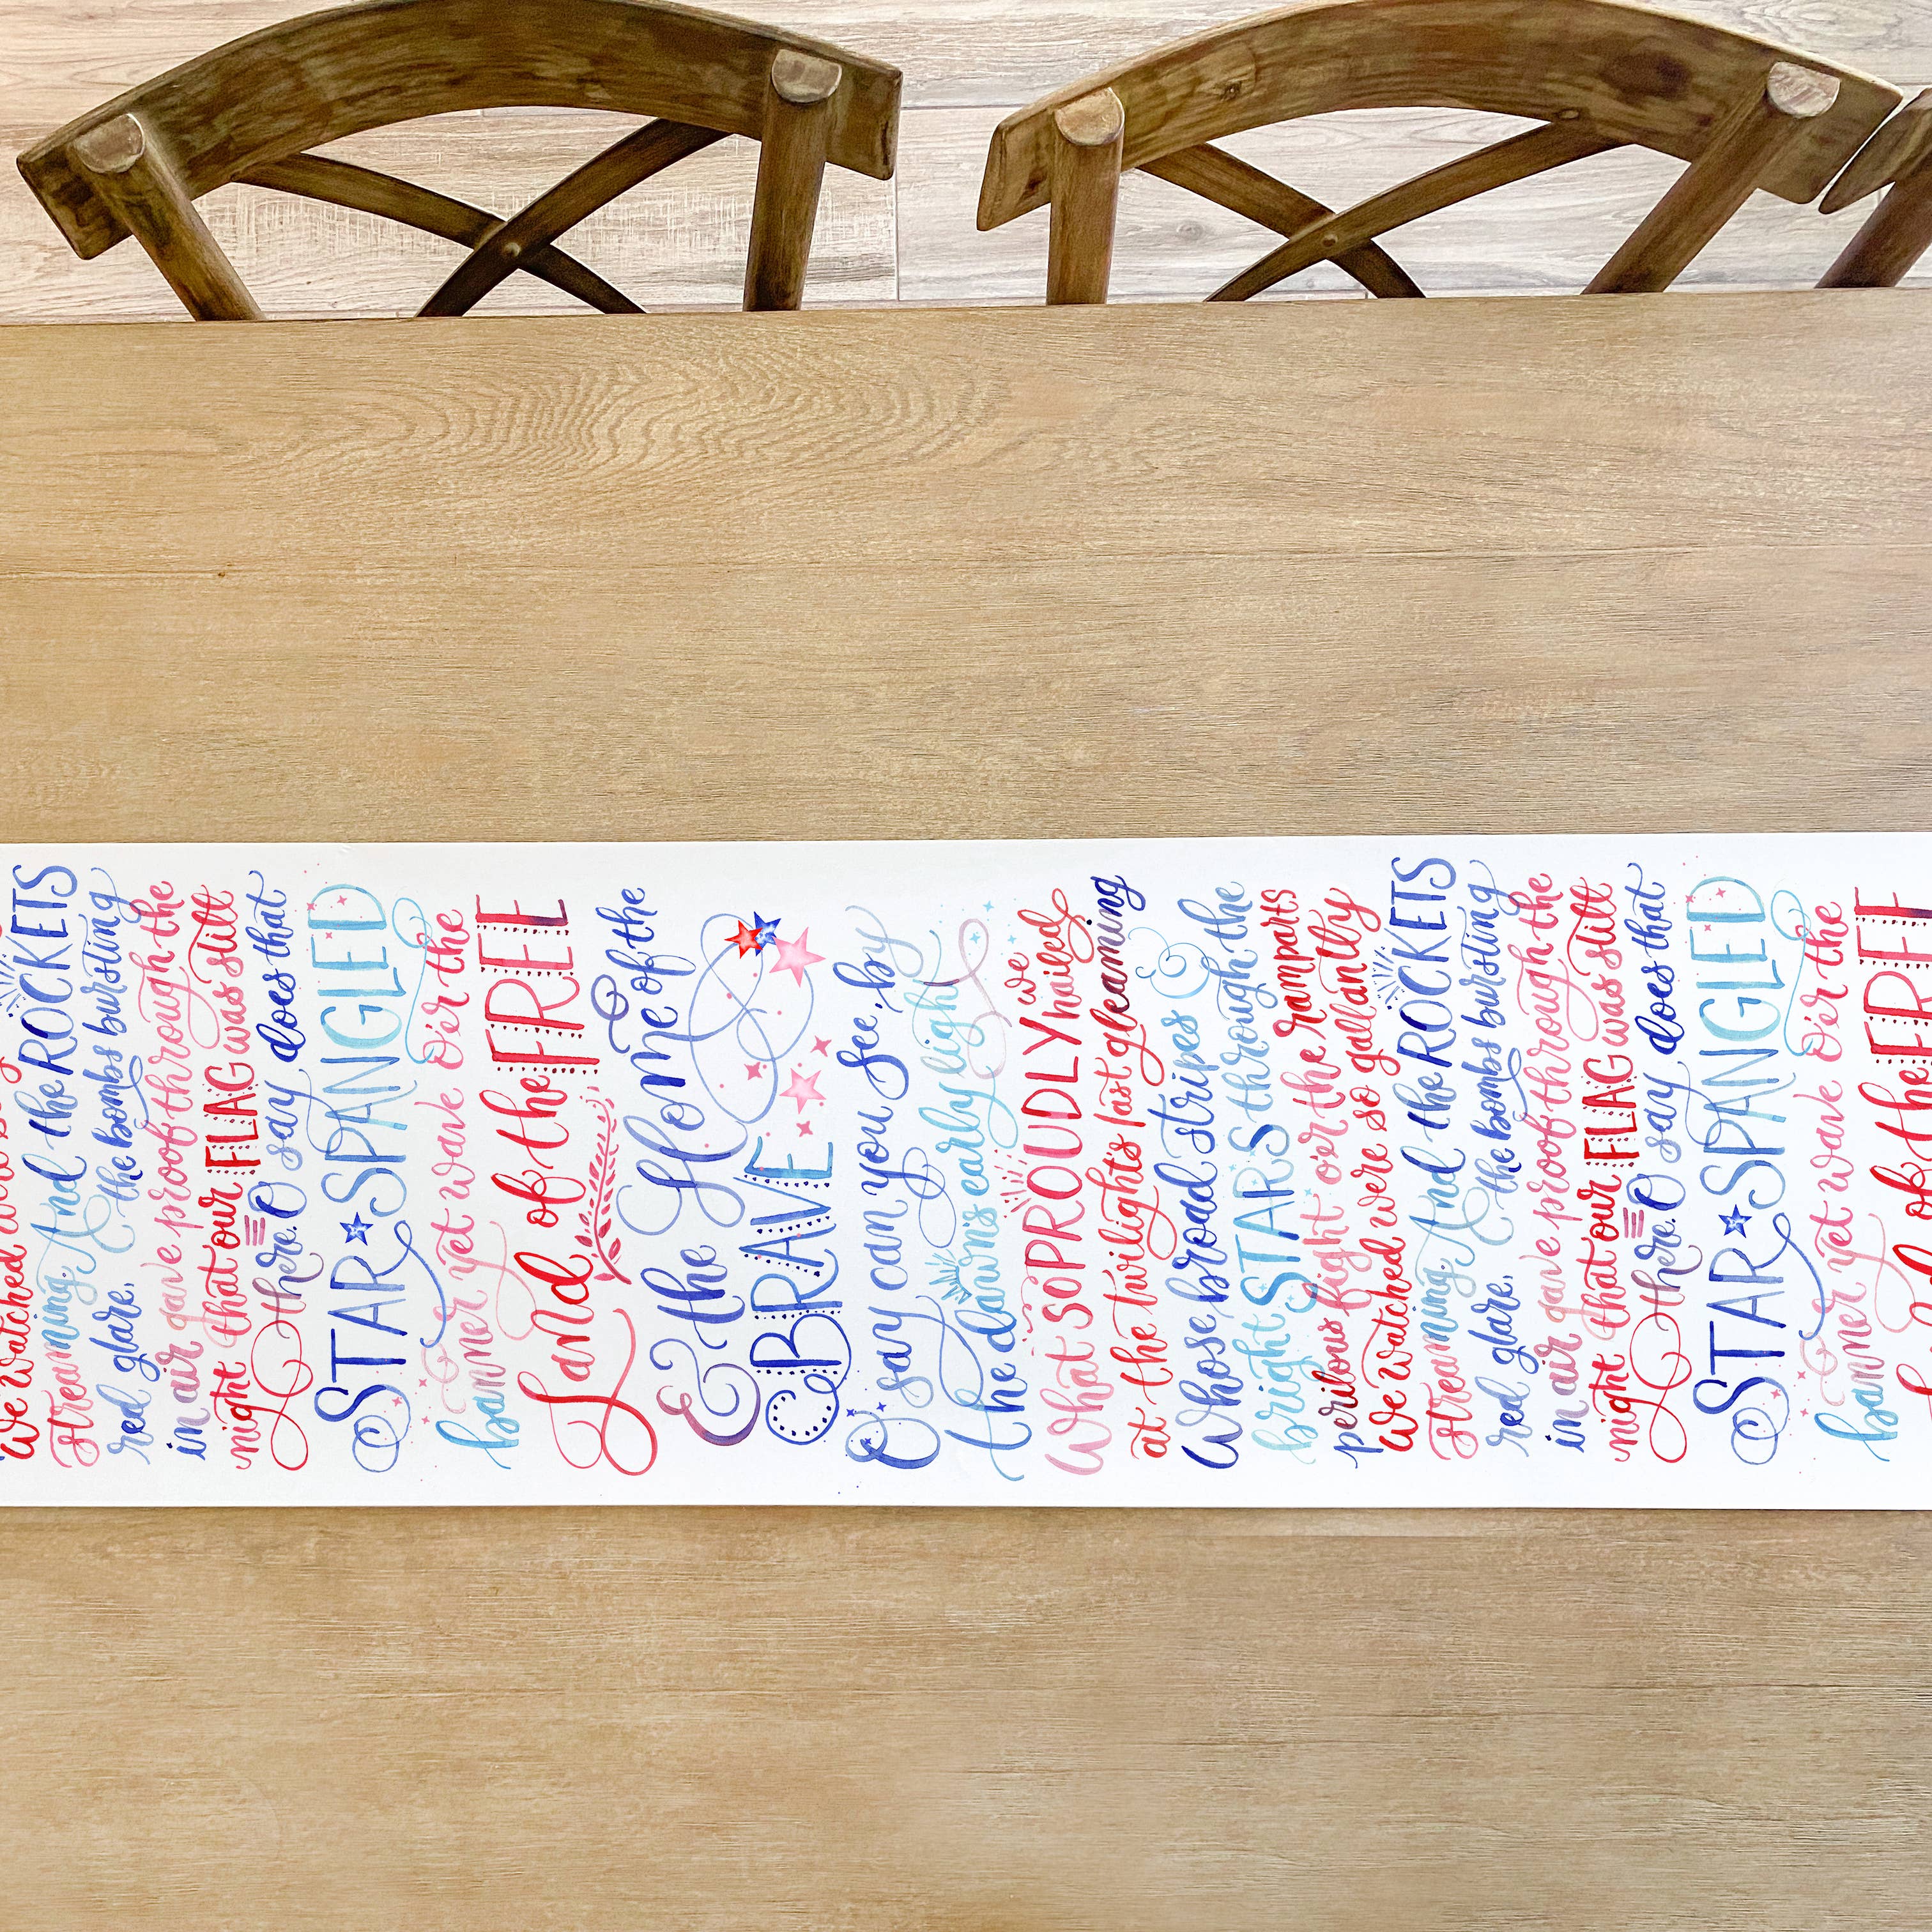 We watched were so
streaming. And the ROCKETS
red glare, the bombs bursting
in air gave proof through the
night that our FLAG was still
there. O say does that
STAR SPANGLED
banner yet wave O'er the
Land of the FREE
& the Home of the
BRAVE
O say can you see, by
the dawn's early light
What so PROUDLY we hailed
at the twilight's last gleaming
Whose broad stripes &
bright STARS through the
perilous fight o'er the ramparts
We watched were so gallantly
streaming. And the ROCKETS
red glare, the bombs bursting
in air gave proof through the
night that our FLAG was still
there. O say does that
STAR SPANGLED
banner yet wave O'er the
of the FREE